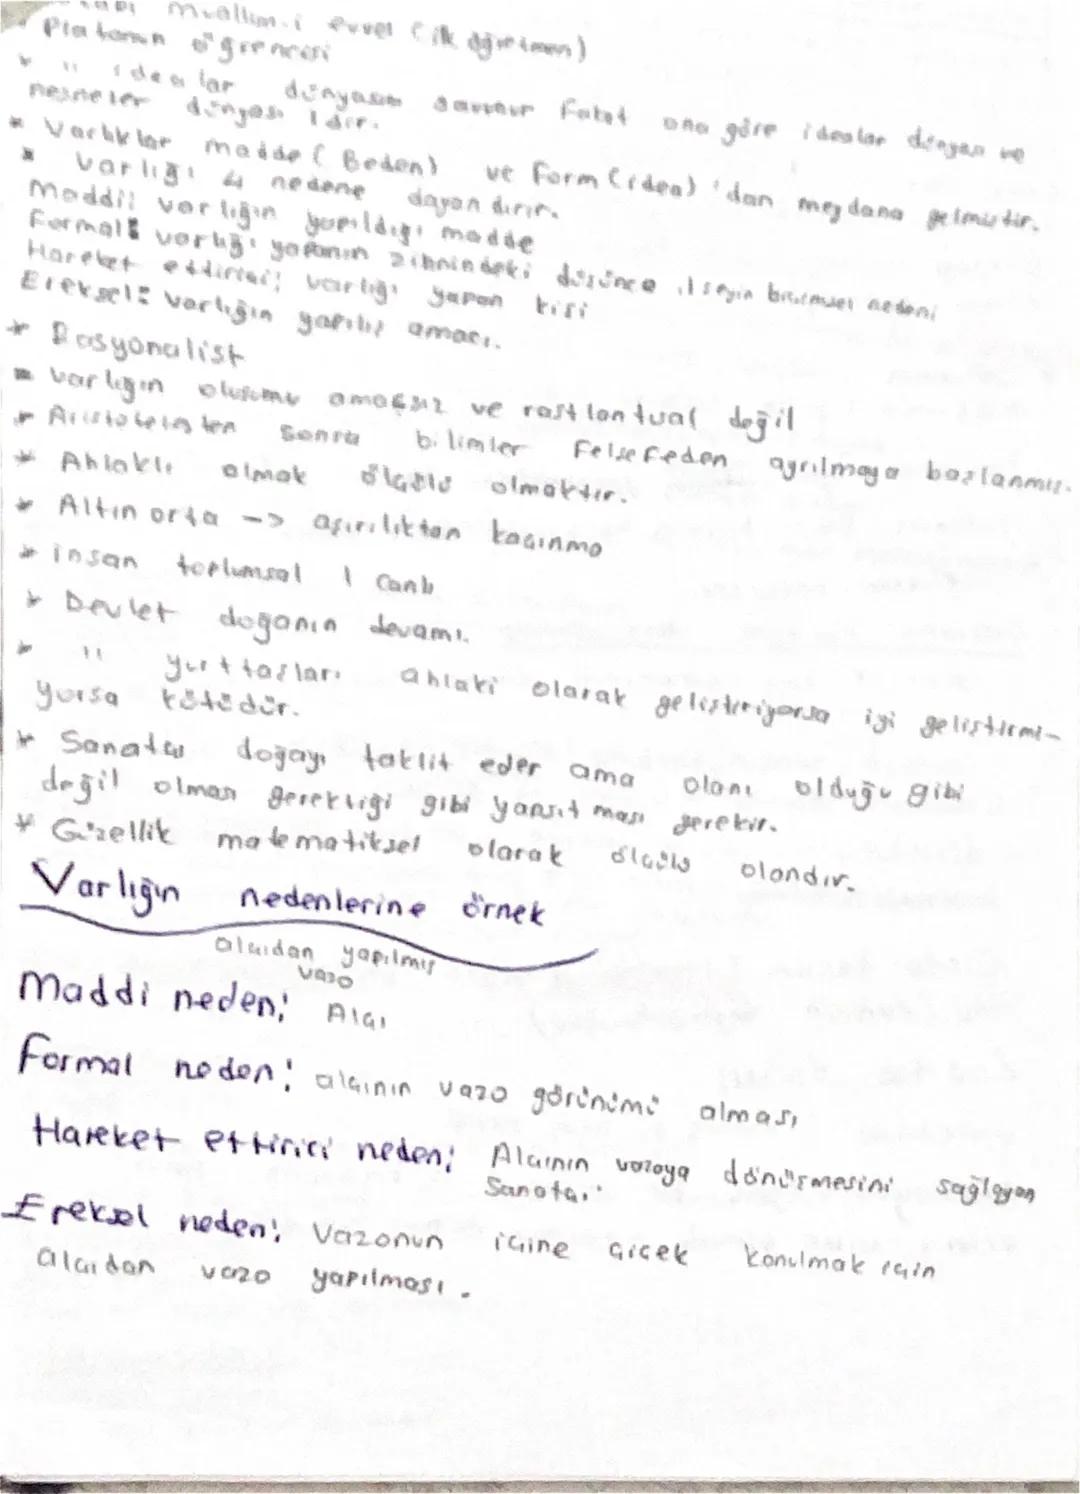 Muallim-i evvel (ilk öğretmen)
Platonun öğrencisi
* " idealar dünyasını savunur fakat ona göre idealar dünyası ve
nesneler dünyası 1 dir.
* Varlıklar madde (Beden) ve Form (idea)'dan meydana gelmiştir.
* Varlığı 4 nedene dayandırır.
Maddi: varlığın yapıldığı madde
Formal: varlığı yapanın zihnindeki düşünce, 1 şeyin biçimsel nedeni
Hareket ettirici; varlığı yapan kişi
Ereksel: varlığın yapılış amacı.
* Rasyonalist
* Varlığın oluşumu amaçsız ve rastlantual değil
* Aristotelesten sonra bilimler Felsefeden ayrılmaya başlanmış.
* Ahlaklı olmak ölçülü olmaktır.
* Altın orta -> aşırılıktan kaçınma
* insan toplumsal 1 canlı
* Devlet doğanın devamı.
* " yurttaşları ahlaki olarak geliştiriyorsa iyi geliştirmi-
yorsa kötüdür.
* Sanatçı doğayı taklit eder ama olanı olduğu gibi
değil olması gerektiği gibi yansıtması gerekir.
* Güzellik matematiksel olarak ölçülü olandır.
Varlığın nedenlerine örnek
alçıdan yapılmış
vazo
Maddi neden; Alçı
Formal neden; alçının vazo görünümü alması
Hareket ettirici neden; Alçının vazoya dönüşmesini sağlayan
Sanatçı
Ereksel neden; Vazonun içine çiçek konulmak için
alçıdan vazo yapılması.